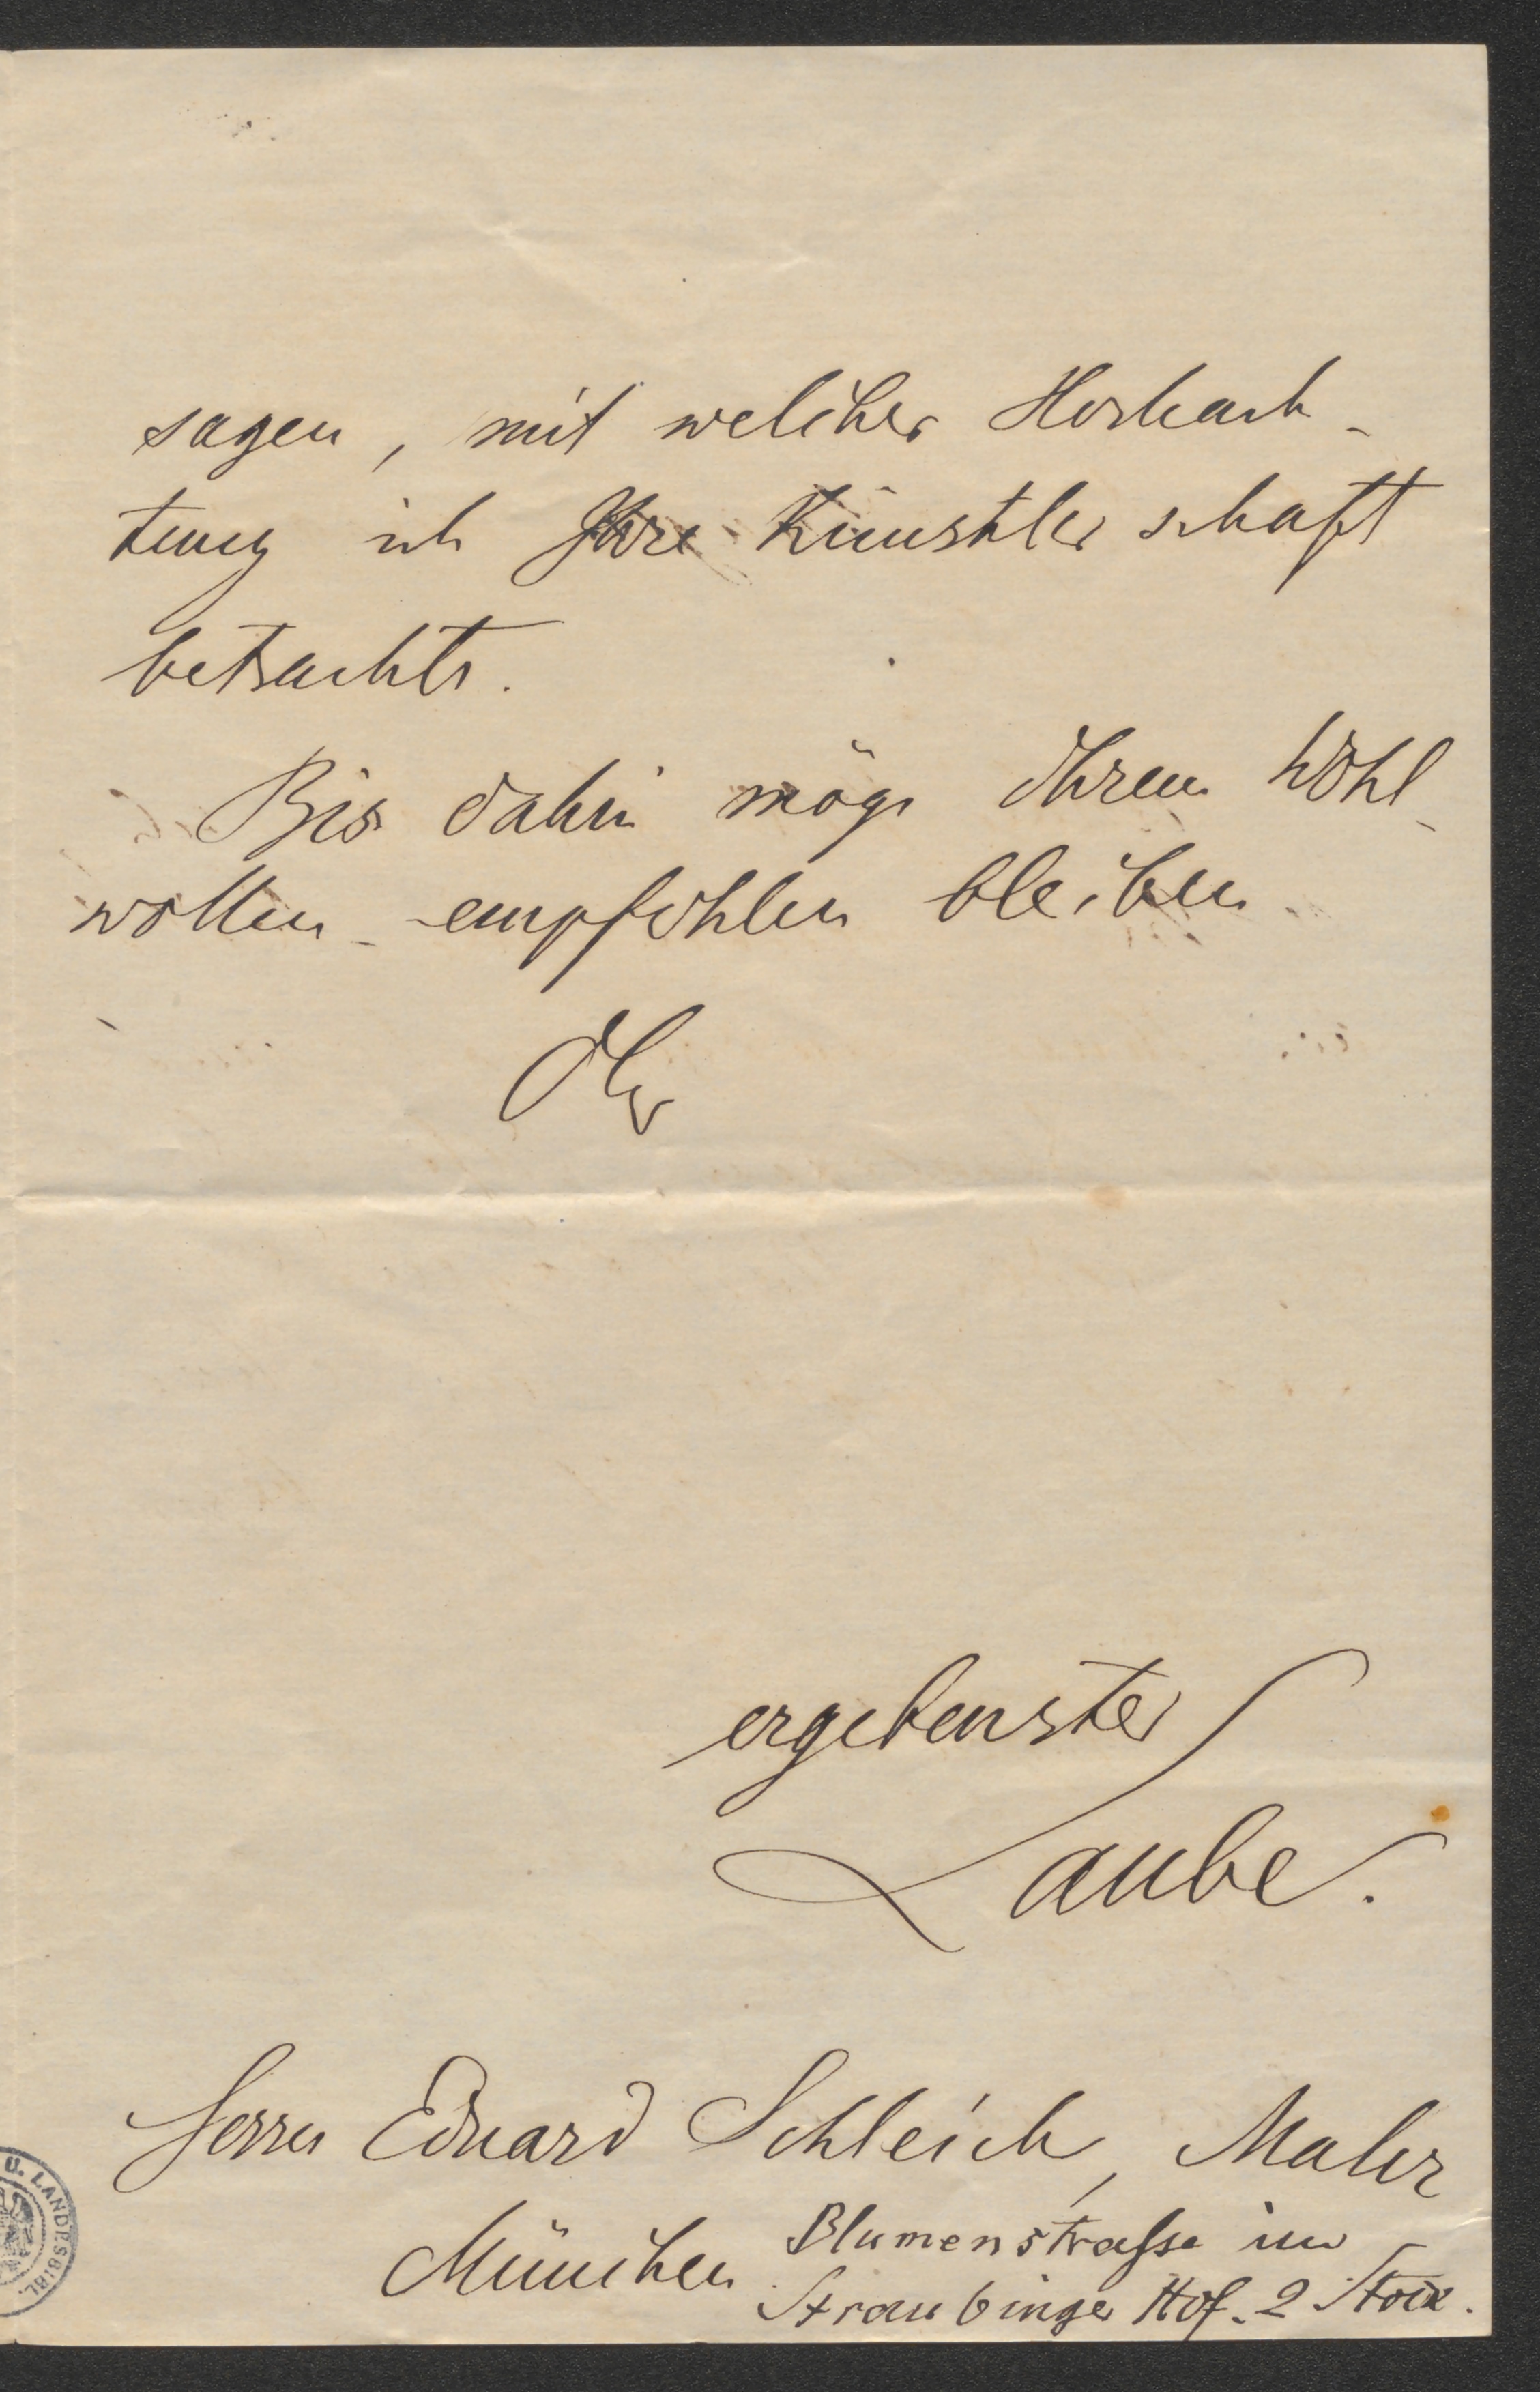 sagen, mit welcher Hochach-
tung ich Ihre Künstlerschaft
betrachte.
Bis dahin möge Ihrem Wohl-
wollen empfohlen bleiben
Ihr
ergebenster
Laube.
Herrn Eduard Schleich, Maler
München Blumenstraße im
Straubinger Hof. 2 Stock.
U. LANDESBIBL.